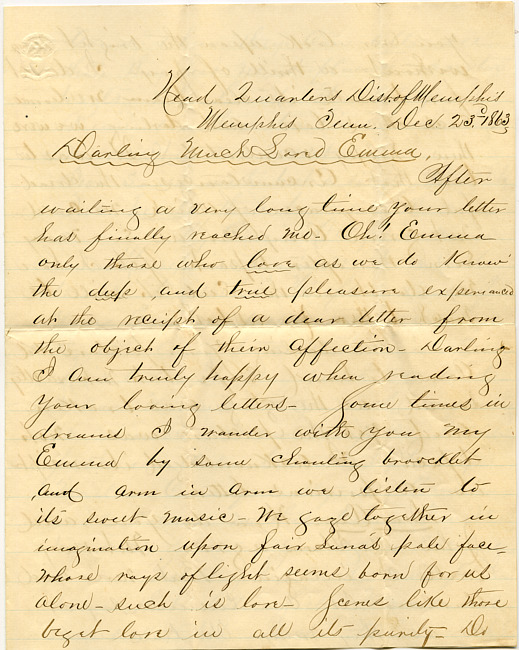 Head Quarters Dist. of Memphis
Memphis Tenn. Dec. 23d 1863
Darling Much Loved Emma,
After
waiting a very long time your letter
has finally reached me - Oh! Emma
only those who love as we do know
the deep and true pleasure experianced
at the receipt of a dear letter from
the object of their affection - Darling
I am truly happy when reading
your loving letters - Some times in
dreams I wander with you my
Emma by some chanting broocklet
and arm in arm we listen to
its sweet music - We gaze together in
imagination upon fair Luna's pale face -
whose rays of light seems born for us
alone - such is love - Scenes like those
beget love in all its purity - Do